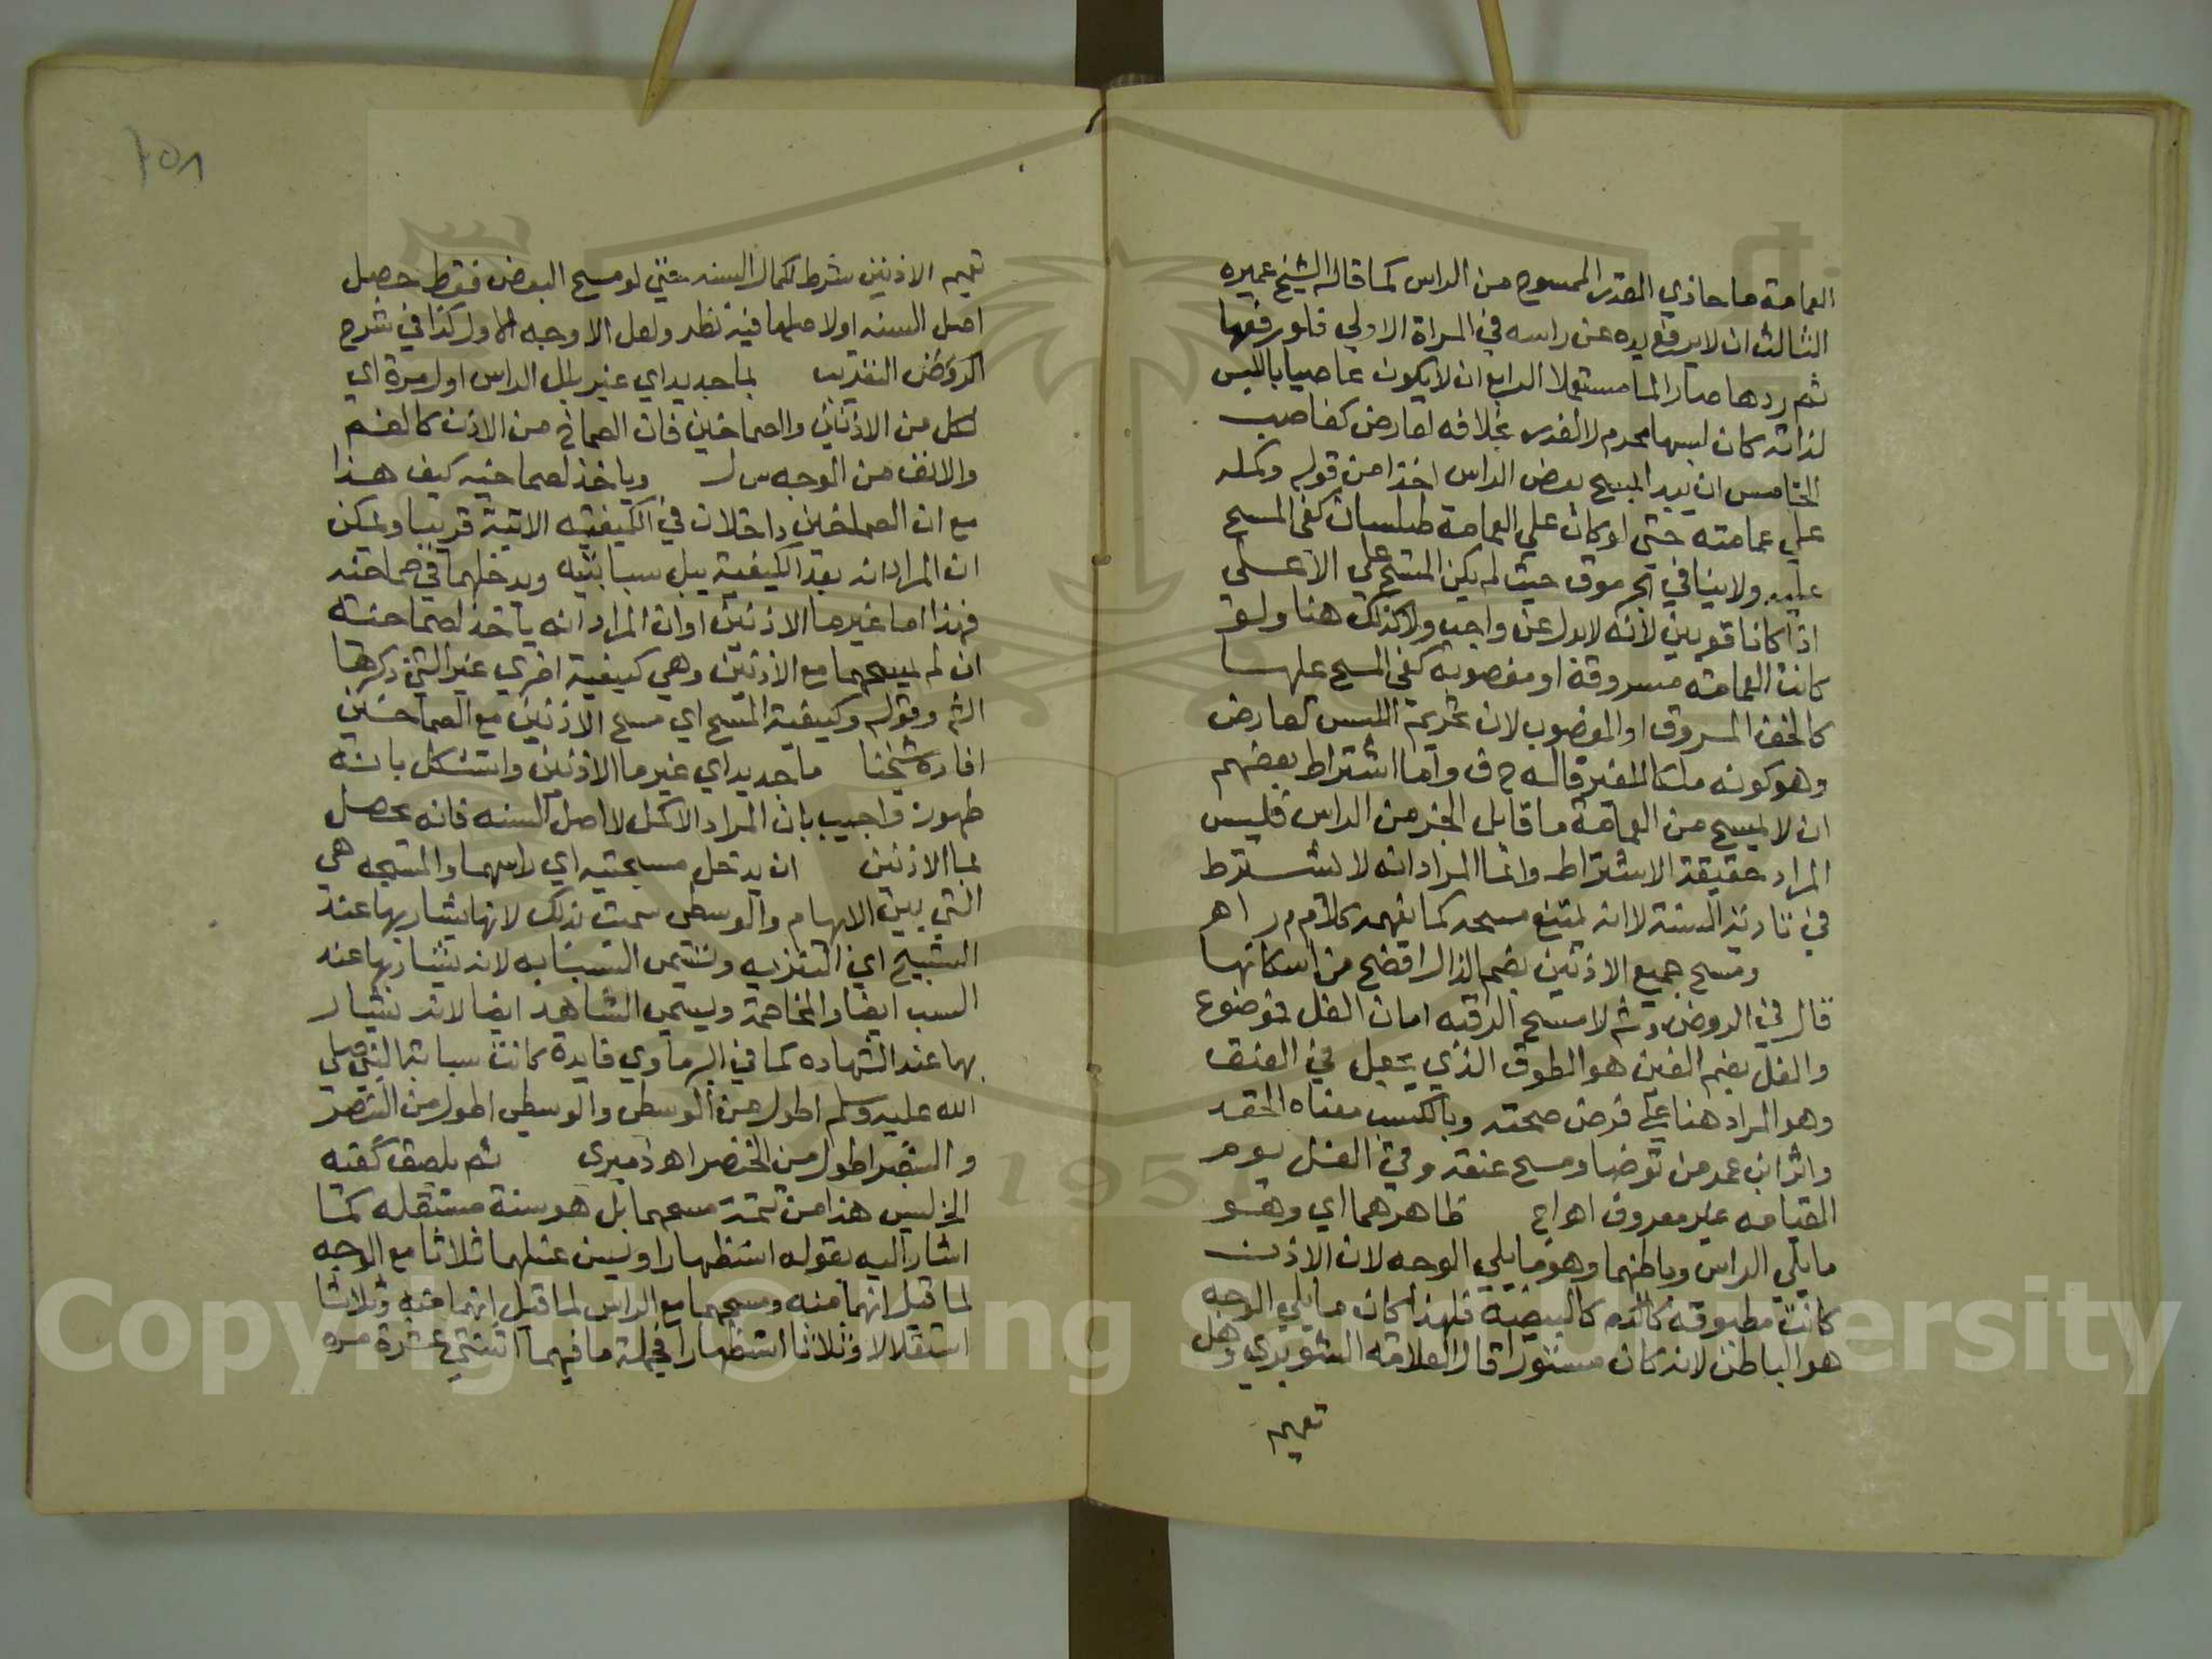 العمامة ما حاذي القدر الممسوح من الراس كما قاله الشيخ عميره
الثالث ان لا يرفع يده عن راسه في المراة الاولي فلو رفعها
ثم ردها صار الما مستعملا الرابع ان لا يكون عاصيا باللبس
لذاته كان لبسها محرم لا لعذر بخلافه لعارض كغاصب
الخامس ان يبدا بمسح بعض الراس اخذا من قوله وكمله
علي عمامته حتي لو كان علي العمامة طيلسان كفي المسح
عليه ولا ينافي الجرموق حيث لم يكن المسح علي الاعلي
اذا كانا قويين لانه لابدل عن واجب ولا كذلك هنا ولو
كانت العمامته مسروقة او مغصوبة كفي المسح علها
كالخف المسروق او المغصوب لان تحريمة اللبس لعارض
وهو كونه ملكا للغير قاله ح ف واما اشتراط بعضهم
ان لا يمسح من العمامة ما قابل الجز من الراس فليس
المراد حقيقة الاشتراط وانما المراد انه لا يشترط
في تادية السنة لا انه يمتنع مسحه كما يفهمه كلام م ر اهر
ومسح جميع الاذنين بضم الذال افصح من اسكانها
قال في الروض وشم لا مسح الرقبه امان الغل فوضوع
والغل بضم الغين هو الطوق الذي يجعل في العنق
وهو المراد هنا علي فرض صحته وبالكسر معناه الحقد
واثر ابن عمر من توضا ومسح عنقه وقي الغل يوم
القيامه غير معروف اه اج ظاهرهما اي وهو
ما يلي الراس وباطنهما وهو ما يلي الوجه لان الاذن
كانت مطبوقة كالكم كالبيضة فلهذا كان ما يلي الوجه
هو الباطن لانه كان مستورا قال العلامه الشوبري وهل
تعميم
٢٥٨
تعميم الاذنين شرط لكمال السنه حتي لو مسح البعض فقط حصل
اصل السنه او لا صلها فيه نظر ولعل الاوجه الاول كذا في شرح
الروض التقريب بما جديد اي غير بلل الراس اول مرة اي
لكل من الاذنين والصماخين فان الصماخ من الاذن كالفم
والانف من الوجه س ل وياخذ لصماخيه كيف هذا
مع ان الصماخين داخلان في الكيفيته الاتية قريبا ويمكن
ان المراد انه بعد الكيفية يبل سبابتيه ويدخلهما في صماخيه
فهذا اما غير ما الاذنين او ان المراد انه ياخذ لصماخيه
ان لم يمسحهما مع الاذنين وهي كيفية اخري غير التي ذكرها
الشم وقوله وكيفية المسح اي مسح الاذنين مع الصماخين
افاده شيخنا ما جديد اي غير ما الاذنين واستشكل بانه
طهور واجيب بان المراد الاكمل لا اصل السنه فانه يحصل
بما الاذنين ان يدخل مسبحتيه اي راسهما والمسبحه هي
التي بين الابهام والوسطي سميت بذلك لانها يشار بها عند
التسبيح اي التنزيه وتسمي السبابه لانه يشار بها عند
السب ايضا والمخاصمة ويسمي الشاهد ايضا لانه يشار
بها عند الشهاده كما في البرماوي فايدة كانت سبابة النبي صلي
الله عليه وسلم اطول من الوسطي والوسطي اطول من البنصر
والبنصر اطول من الخنصر اه دميري ثم يلصق كفيه
الخ ليس هذا من تتمة مسحهما بل هو سنة مستقله كما
اشار اليه بقوله استظهارا ويسن غسلهما ثلاثا مع الوجه
لما قيل انهما منه ومسحهما مع الراس لما قيل انهما منه وثلاثا
استقلالا وثلاثا استظهارا فجملة ما فيهما اثنتي عشرة مره
Copyright © King Saud University
1957